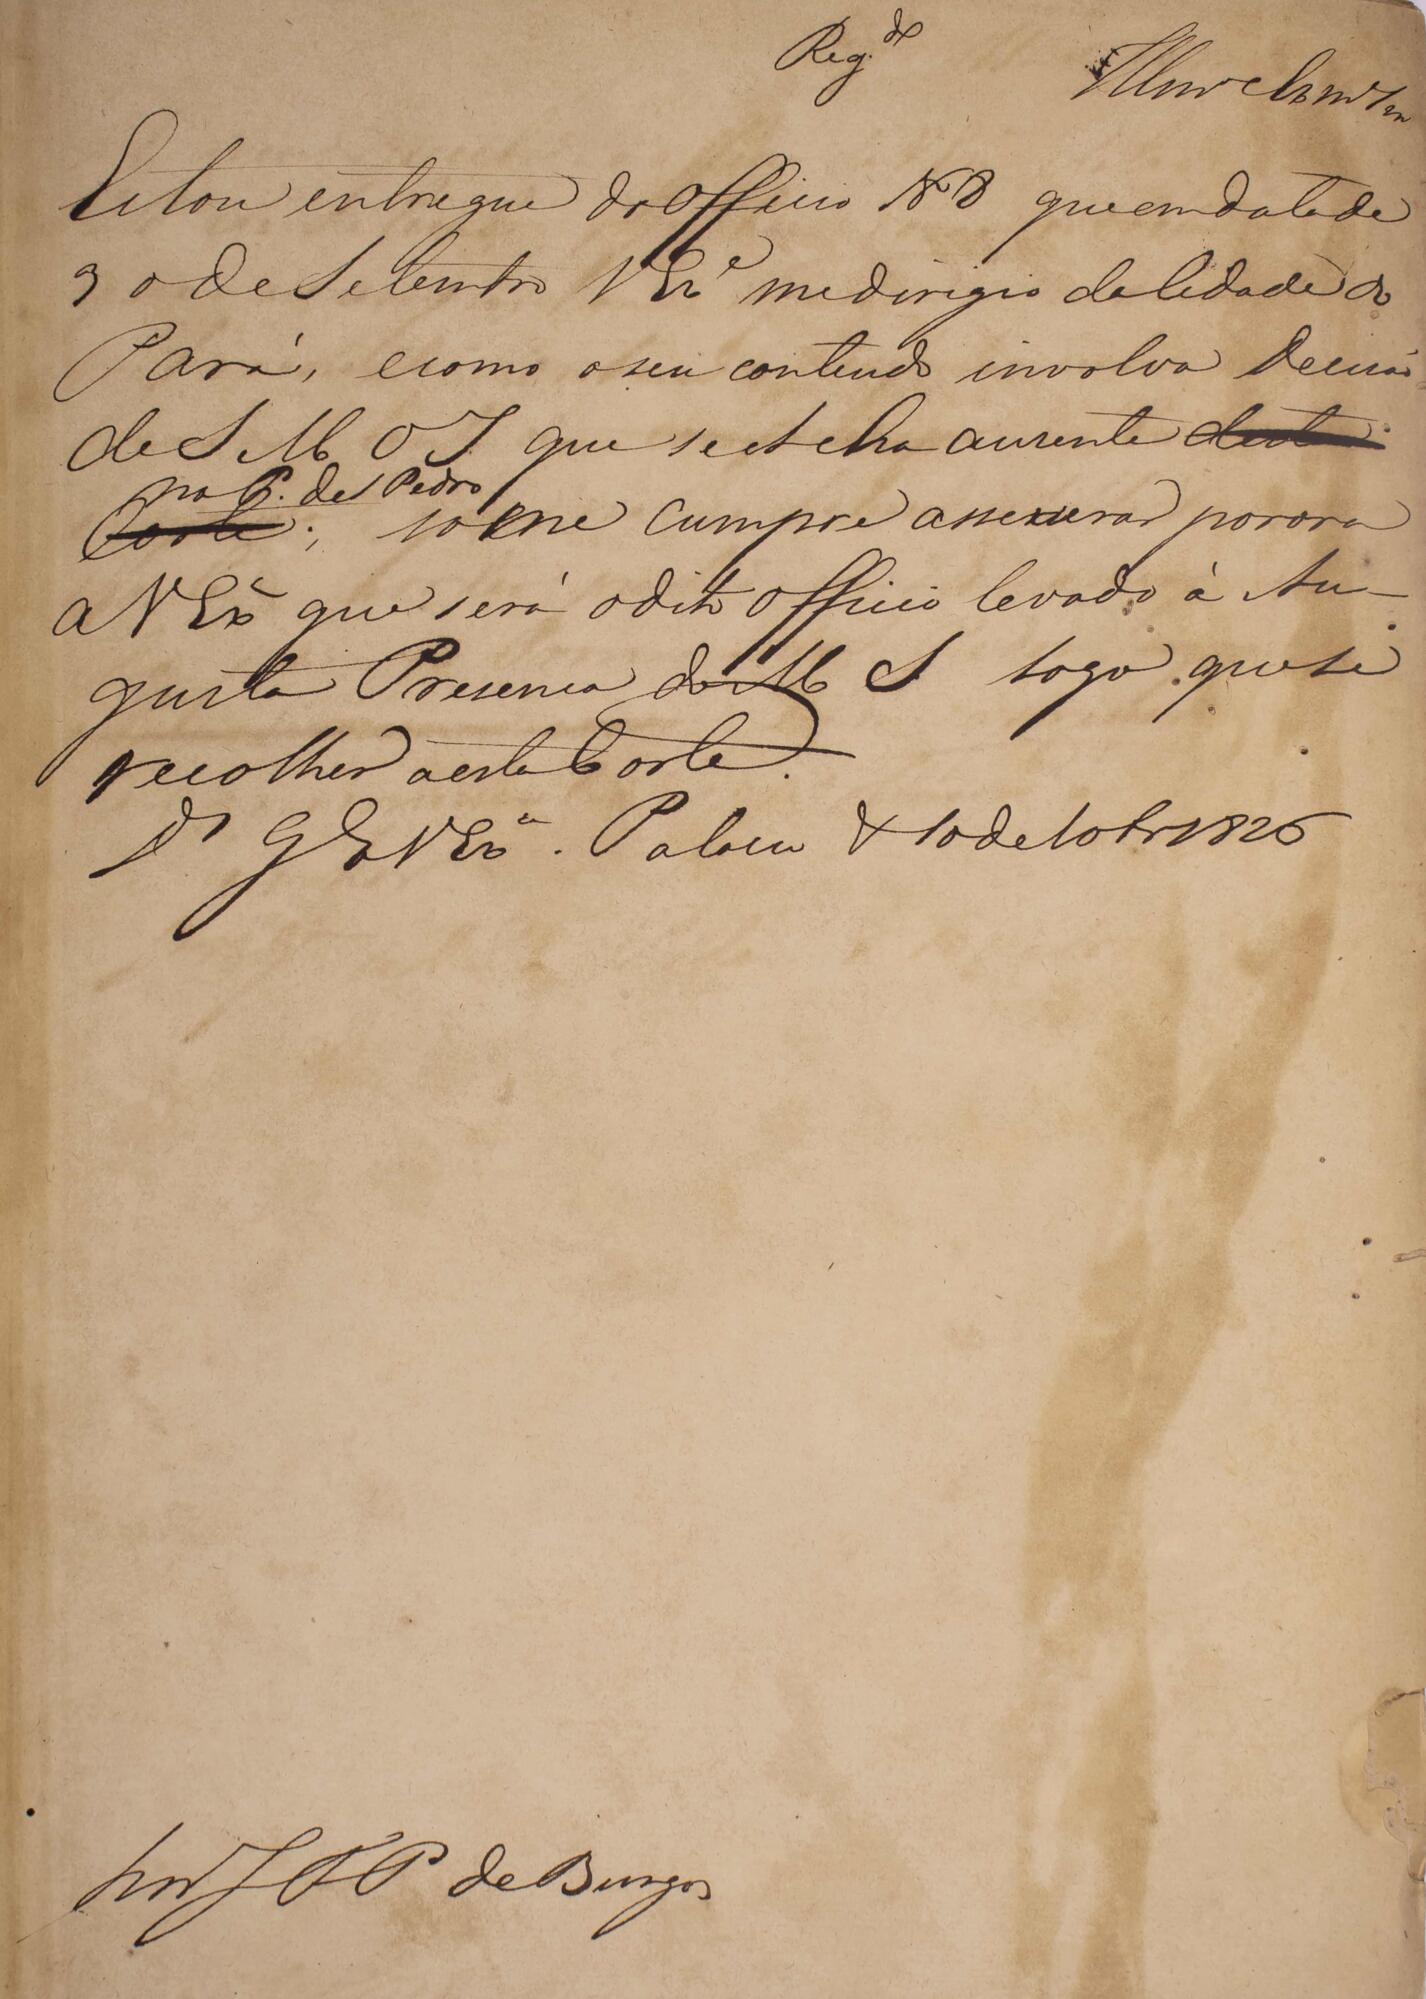 Reg.do
Illmo e Exmo Snr
Estou entregue do Officio Nº 8 que em data de
30 de Setembro V Exª me dirigio da Cidade do
Pará, e como o seu contendo involva Decisão
de S M O I que se acha ausente desta
na P. de S Pedro
Corte; so me cumpre assegurar por ora
a V Exª que será o dito Officio levado à Au-
gusta Presença do M S logo que se
recolher a esta Corte.
Ds Ge a V Exª. Palacio 10 de 1826
Snr J F P de Burgos